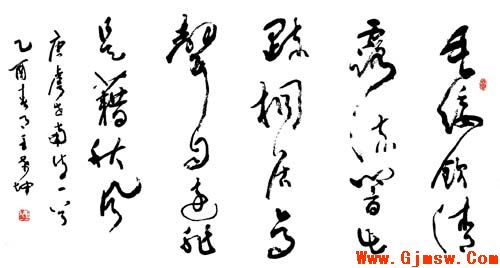 垂緌飲清
露流響出
疎桐居高
聲自遠非
是藉秋风
唐虞世南诗一首
乙酉春月王坤
Www.Gjmsw.Com